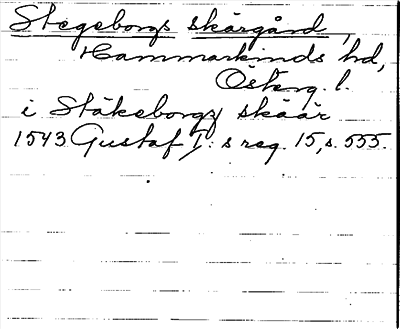 Stegeborgs skärgård,
Hammarkinds hd,
Österg. l.
i Stäkeborgz skäär
1543 Gustaf I:s reg. 15, s. 555.